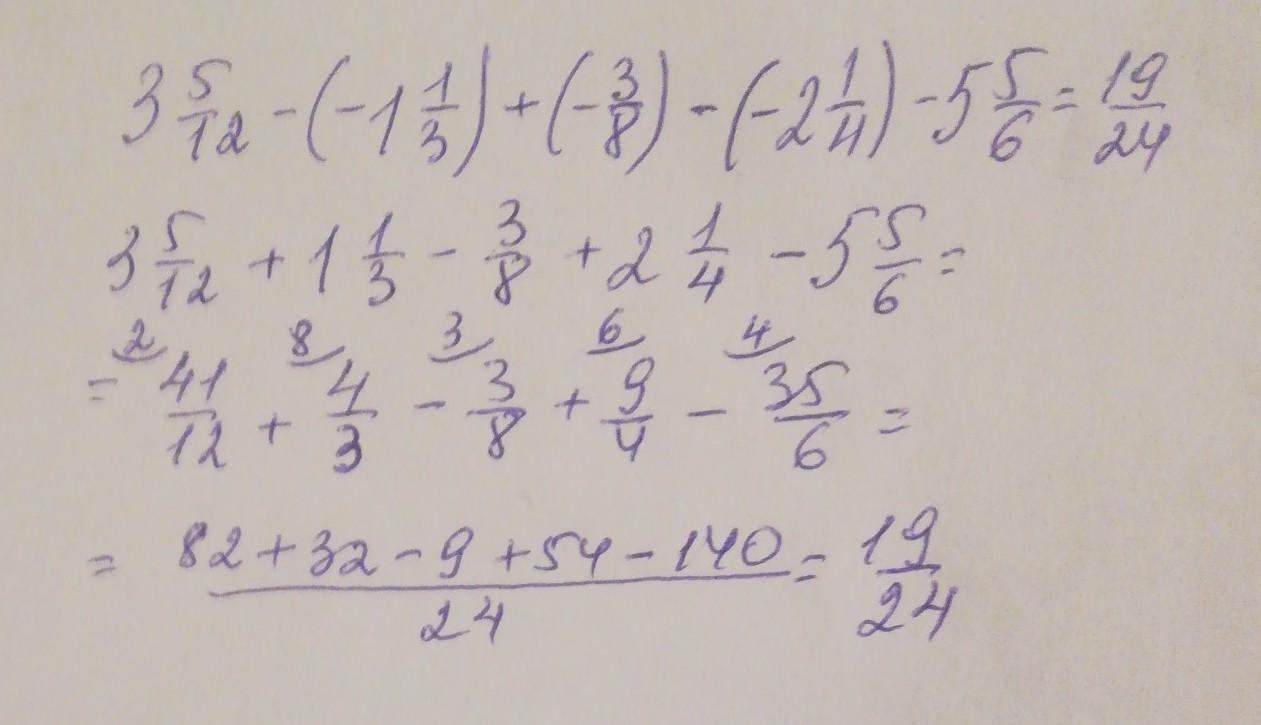 3 5/12 - (-1 1/3) + (-3/8) - (-2 1/4) - 5 5/6 = 19/24
3 5/12 + 1 1/3 - 3/8 + 2 1/4 - 5 5/6 =
2 8 3 6 4
= 41/12 + 4/3 - 3/8 + 9/4 - 35/6 =
= (82 + 32 - 9 + 54 - 140)/24 = 19/24